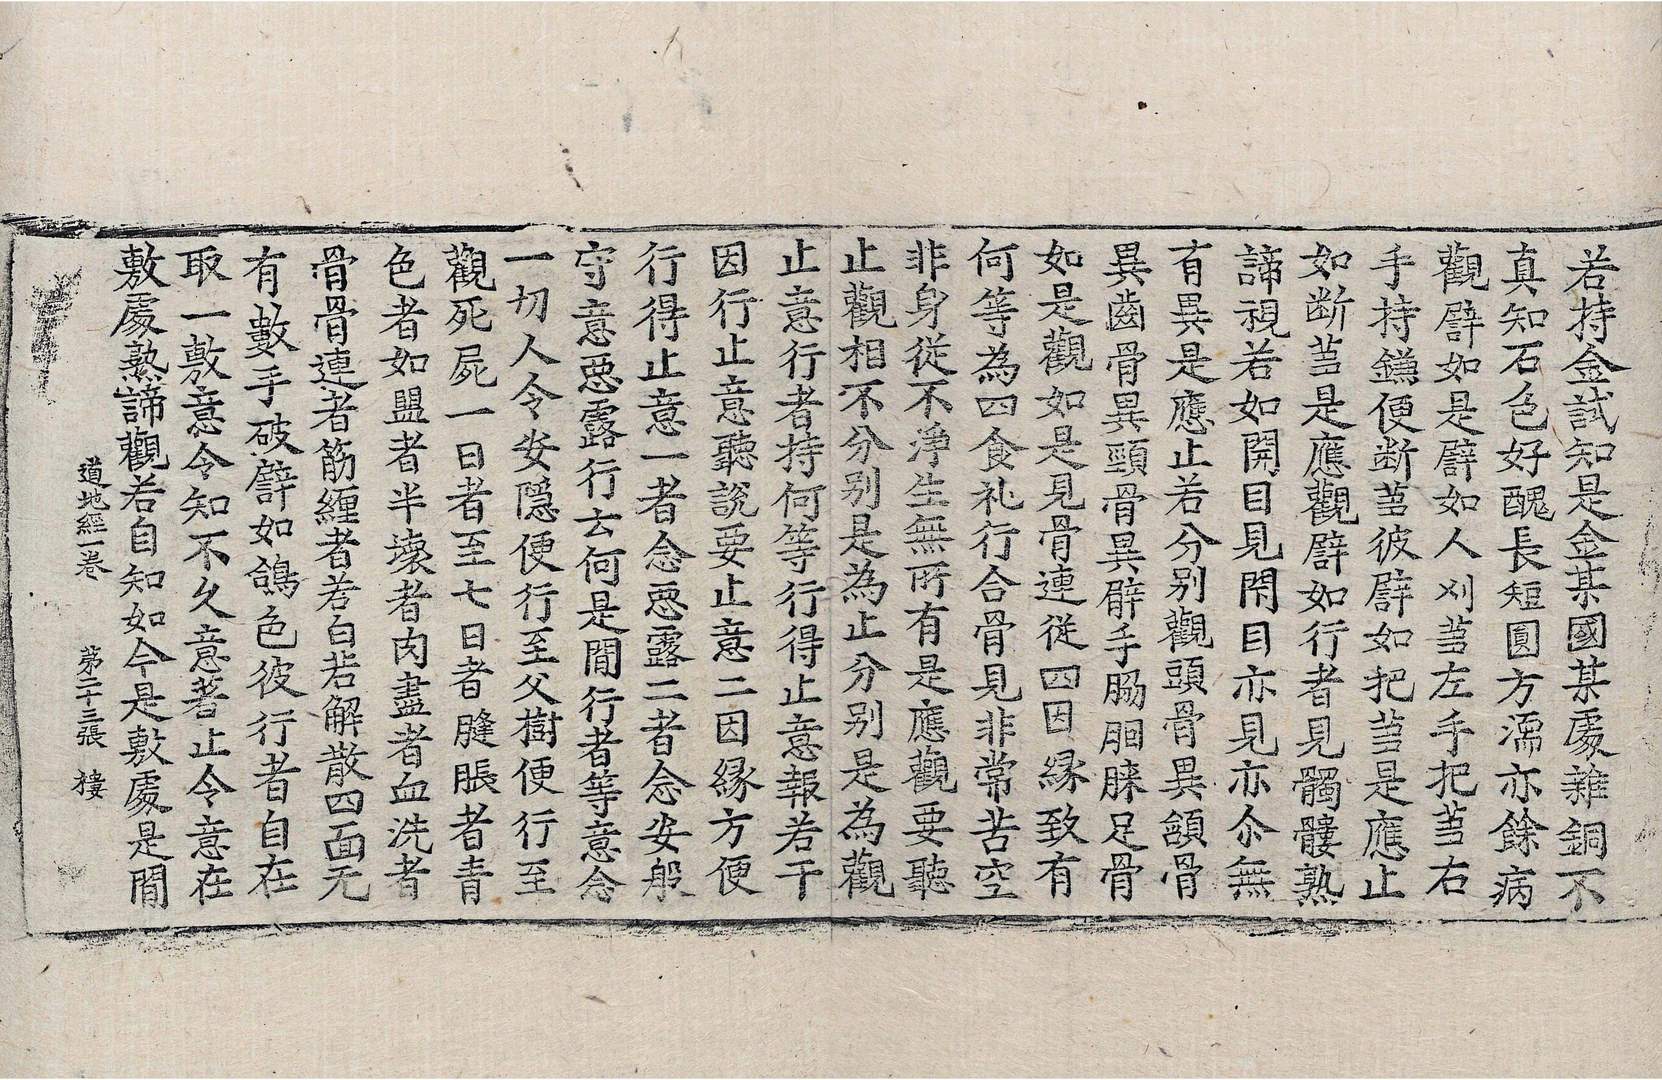 若持金試知是金某國某處雜銅不
真知石色好醜長短圓方濡亦餘病
觀譬如是譬如人刈芻左手把芻右
手持鎌便断芻彼譬如把芻是應止
如断芻是應觀譬如行者見髑髏熟
諦視若如開目見閇目亦見亦尒無
有異是應止若分別觀頭骨異頷骨
異齒骨異頸骨異臂手脇脚足骨
如是觀如是見骨連従四因縁致有
何等為四食礼行合骨見非常苦空
非身從不淨生無所有是應觀要聽
止觀相不分別是為止分別是為觀
止意行者持何等行得止意報若干
因行止意聽說要止意二因縁方便
行得止意一者念惡露二者念安般
守意惡露行云何是閒行者等意念
一切人令安隱便行至父樹便行至
觀死屍一日者至七日者膖脹者青
色者如盟者半壞者肉盡者血洗者
骨骨連者筋纏者若白若解散四面无
有數手破譬如鴿色彼行者自在
取一敷意令知不久意著止令意在
敷處熟諦觀若自知如今是敷處是閒
道地經一卷　第二十三張　樓